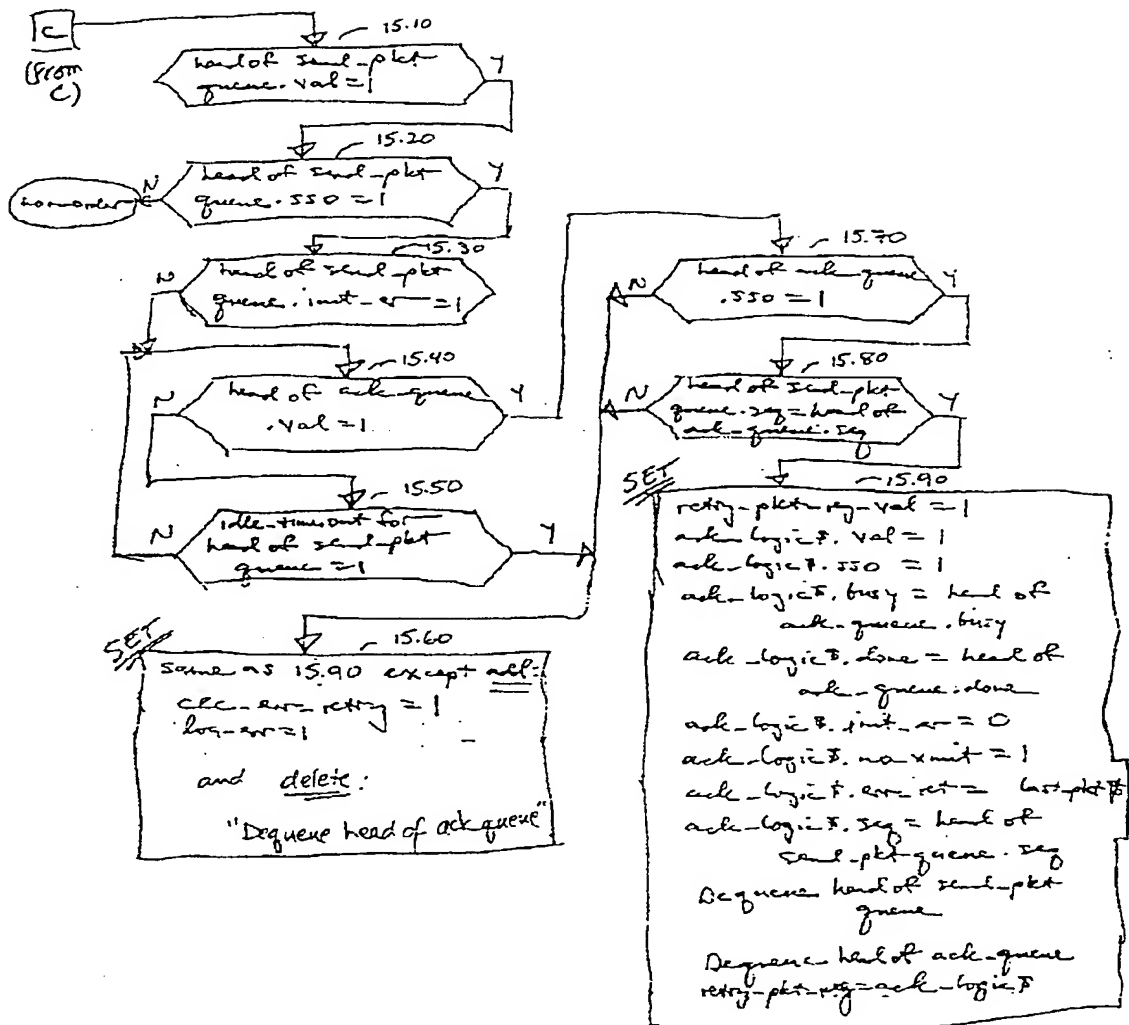 C
(From
C)
15.10
head of send-pkt
queue.val=1
Y
15.20
head of send-pkt
queue.sso=1
N
Y
15.30
head of send-pkt
queue.init-err=1
N
15.40
head of ack-queue
.val=1
N
Y
15.50
idle-timeout for
head of send-pkt
queue=1
N
Y
SET
15.60
same as 15.90 except add:
-err-retry=1
log-err=1
and delete:
"Dequeue head of ack queue"
15.70
head of ack-queue
.sso=1
N
Y
15.80
head of send-pkt
queue.seq=head of
ack-queue.seq
N
Y
SET
15.90
retry-pkt-reg-val=1
ack-logic$.val=1
ack-logic$.sso=1
ack-logic$.busy=head of
ack-queue.busy
ack-logic$.done=head of
ack-queue.done
ack-logic$.init-err=0
ack-logic$.no xmit=1
ack-logic$.err-ret=last-pkt$
ack-logic$.seq=head of
send-pkt-queue.seq
Dequeue head of send-pkt
queue
Dequeue head of ack-queue
retry-pkt-reg=ack-logic$